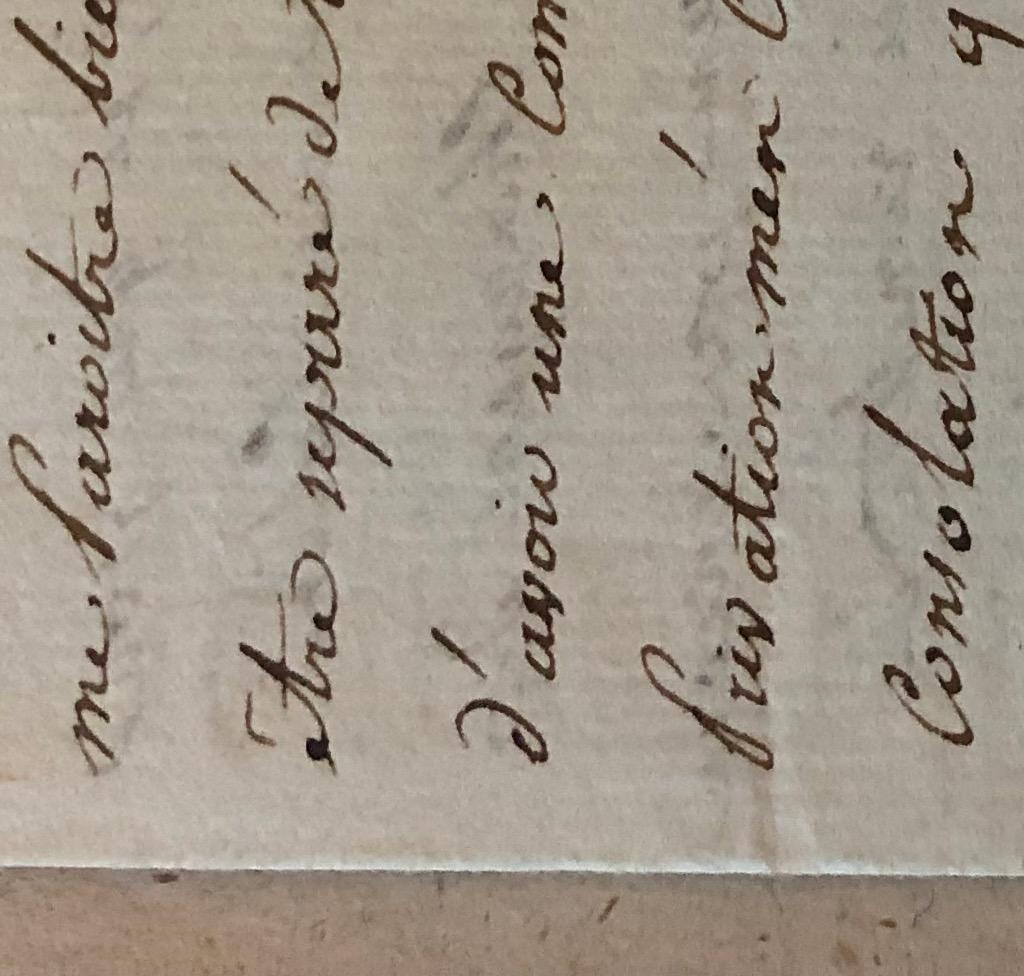 me paroitre bie
être séparé de
d'avoir une Com
privation, mén
Consolation q